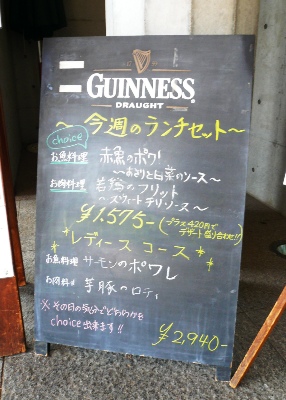 GUINNESS
DRAUGHT
～今週のランチセット～
choice
お魚料理 赤魚のポワレ
～あさりと白菜のソース～
お肉料理 若鶏のフリット
～スウィートチリソース～
¥1.575-（プラス420円で
デザート盛り合わせ!!）
*レディース コース*
お魚料理 サーモンのポワレ
お肉料理 芋豚のロティ
※その日の気分でどちらかを
choice出来ます!!
¥2,940-